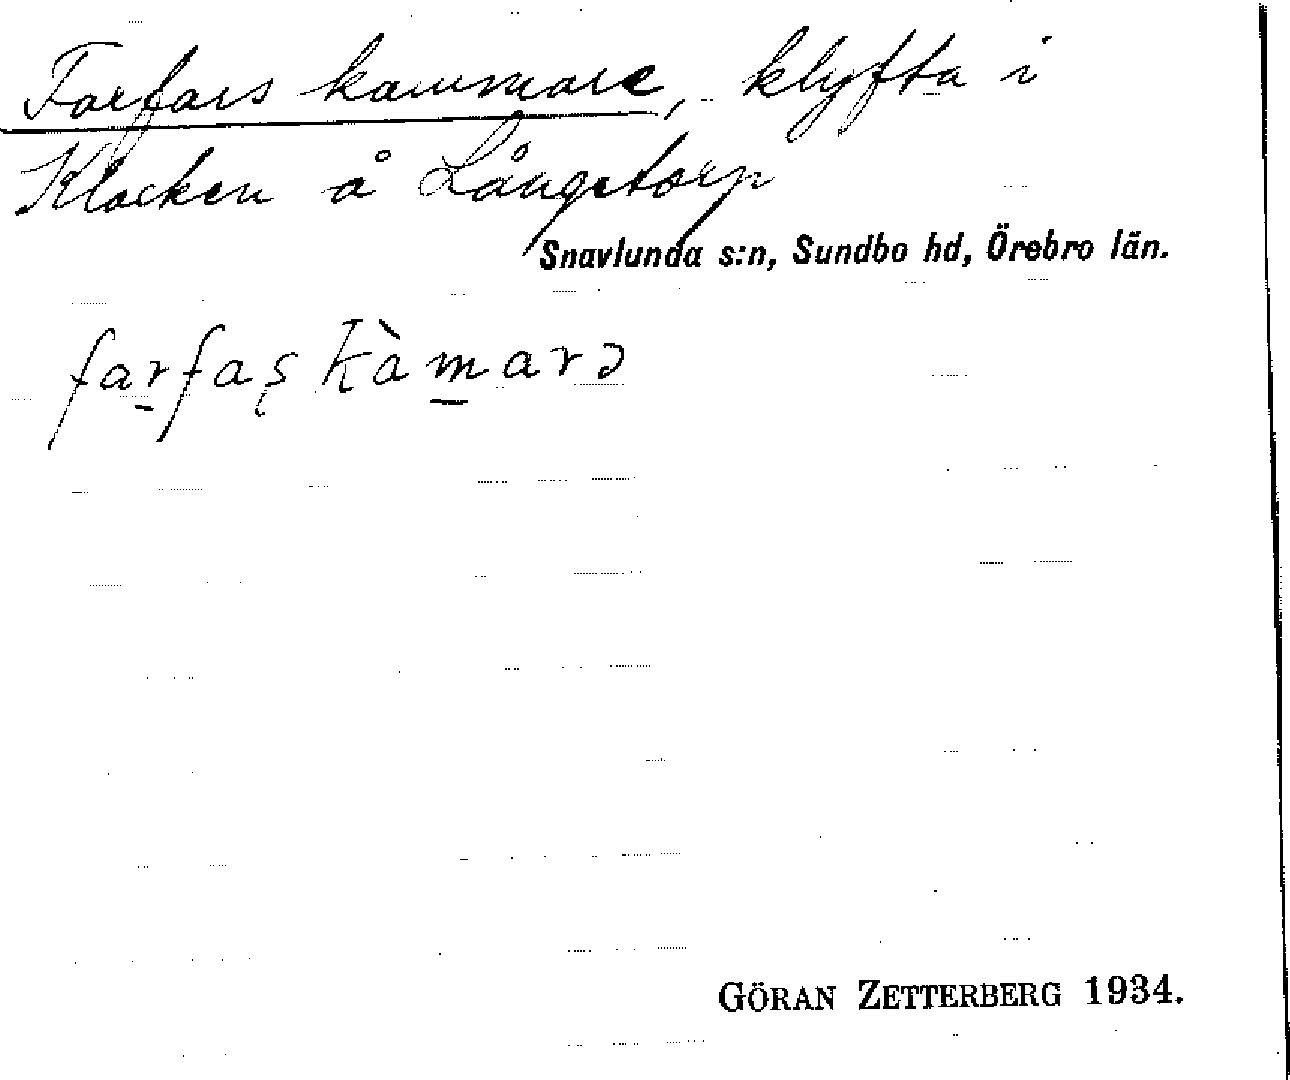 Farfars kammare, klyfta i
Klacken å Långetorp
Snavlunda s:n, Sundbo hd, Örebro län.
farfaʂ kàmarə
GÖRAN ZETTERBERG 1934.